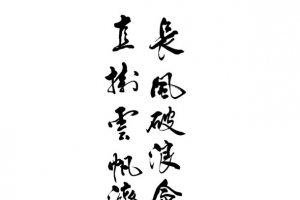 長風破浪會
直掛雲帆濟